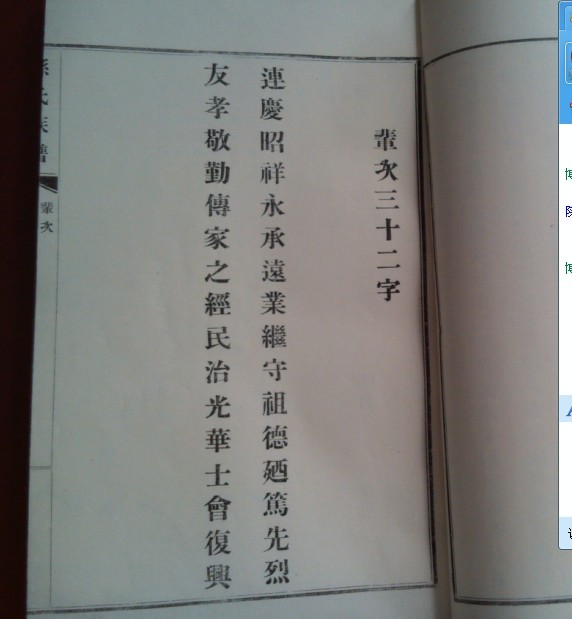 輩次三十二字
連慶昭祥永承遠業繼守祖德廼篤先烈
友孝敬勤傳家之經民治光華士會復興
孫氏族譜
輩次